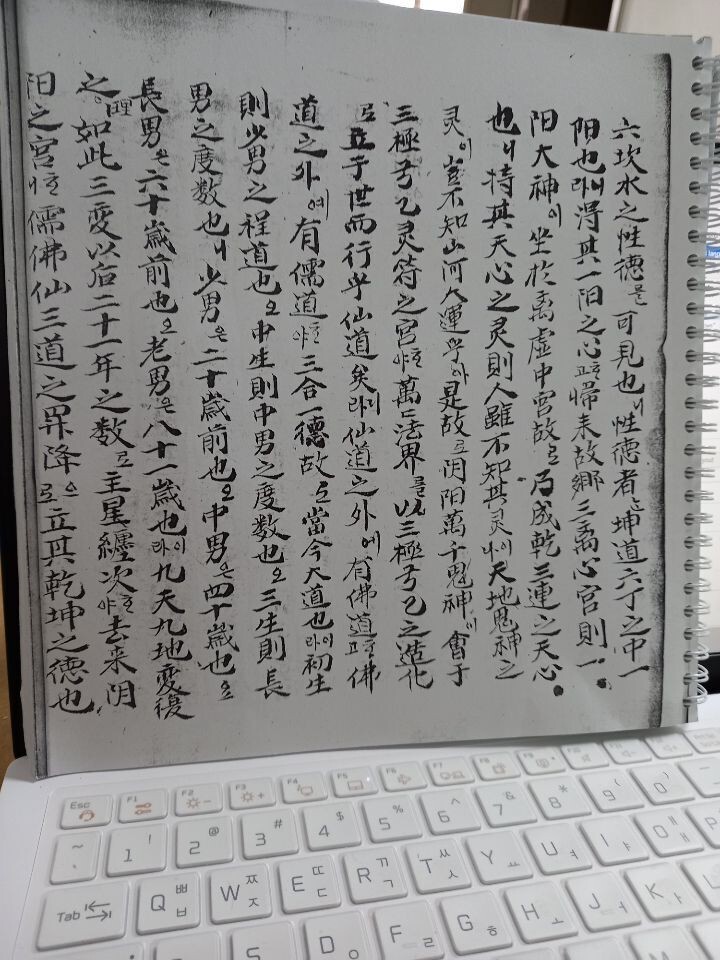 六坎水之性德을可見也니性德者는坤道六丁之中一
阳也라니得其一阳之心고로歸来故鄕三离心宮則一
阳大神이坐於离虛中宮故로乃成乾三連之天心
也니持其天心之灵則人雖不知其灵이나天地鬼神之
灵이豈不知山河大運乎아是故로阴阳萬千鬼神이會于
三極弓乙灵符之宮야萬法界를以三極弓乙之造化
로立于世而行乎仙道矣라니仙道之外에有佛道고佛
道之外에有儒道야三合一德故로當今大道也라이初生
則少男之程道也오中生則中男之度数也오三生則長
男之度数也니少男은二十歲前也오中男은四十歲也오
長男은六十歲前也오老男은八十一歲也라이九天九地変復
之理如此三変以后二十一年之数로主星纏次야去来阴
阳之宮儒佛仙三道之昇降으로立其乾坤之德也
Esc F1 F2 F3 F4 F5 F6 F7 F8
~ 1 ! 2 @ 3 # 4 $ 5 % 6 ^ 7 & 8 * 9 ( 0 )
Tab Q ㅃ ㅂ W ㅉ ㅈ E ㄸ ㄷ R ㄲ ㄱ T ㅆ ㅅ Y ㅛ U ㅕ I ㅑ O ㅒ ㅐ P
S D ㅇ F ㄹ G ㅎ H ㅗ J ㅓ K ㅏ L